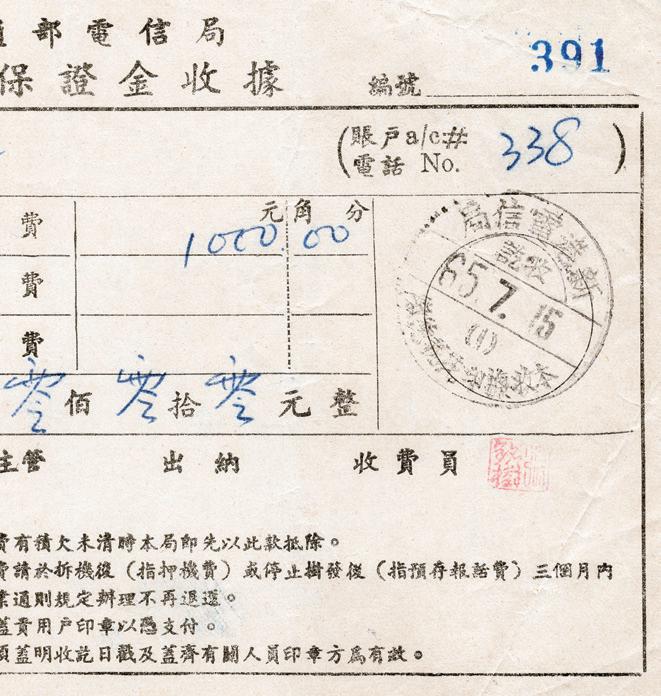 部電信局
保證金收據
編號 391
(賬戶 a/c#
電話 No. 338)
元角分
費 1000.00
費
費
零佰零拾零元整
新營電信局
收訖
65.7.15
(1)
主管 出納 收費員
費有積欠未清時本局即先以此款抵除。
費請於拆機後（指押機費）或停止掛發後（指預存報話費）三個月內
業通則規定辦理不再退還。
蓋貴用戶印章以憑支付。
須蓋明收訖日戳及蓋齊有關人員印章方為有效。